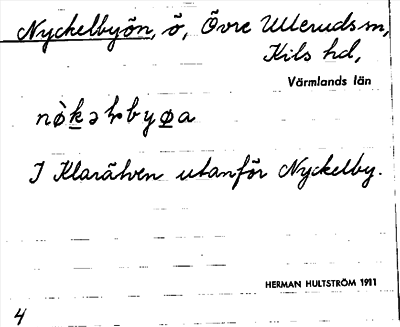 Nyckelbyön, ö, Övre Ulleruds sn,
Kils hd,
Värmlands län
I Klarälven utanför Nyckelby.
HERMAN HULTSTRÖM 1911
4